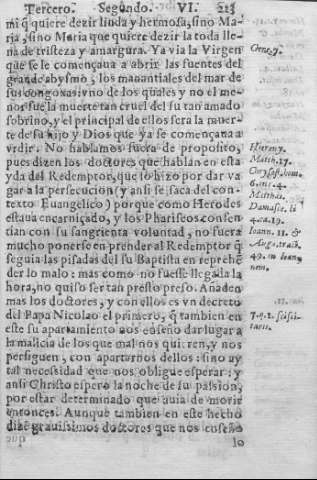 Tercero. Segundo. VI. 223
mi q̃ quiere dezir linda y hermosa, sino Ma-
ria, sino Maria que quiere dezir la toda lle-
na de tristeza y amargura. Ya via la Virgen
que se le començaua a abrir las fuentes del
grande abysmo, los manantiales del mar de
sus congoxas: vno de los quales y no el me-
nos fue la muerte tan cruel del su tan amado
sobrino, y el principal de ellos sera la muer-
te de su hijo y Dios que ya se començaua a
vrdir. No hablamos fuera de proposito,
pues dizen los doctores que hablan en esta
yda del Redemptor, que lo hizo por dar va-
gar a la persecucion (y ansi se saca del con-
texto Euangelico) porque como Herodes
estaua encarniçado, y los Phariseos consen-
tian con su sangrienta voluntad, no fuera
mucho ponerse en prender al Redemptor q̃
seguia las pisadas del su Baptista en reprehẽ
der lo malo: mas como no fuesse llegada la
hora, no quiso ser tan presto preso. Añaden
mas los doctores, y con ellos es vn decreto
del Papa Nicolao el primero, q̃ tambien en
este su apartamiento nos enseño dar lugar a
la malicia de los que mal nos quieren, y nos
persiguen, con apartarnos dellos: sino ay
tal necessidad que nos obligue esperar: y
ansi Christo espero la noche de su passion,
por estar determinado que auia de morir
entonces. Aunque tambien en este hecho
dizẽ grauissimos doctores que nos enseño
lo
Gene. 7.
Hierony.
Matth. 17.
Chrysost. hom.
Matthæ.
Damasc. li
4. ca. 19.
Ioann. 11. &
Aug. tract.
49. in Ioan-
nem.
7. q. 1. sciscitaris.